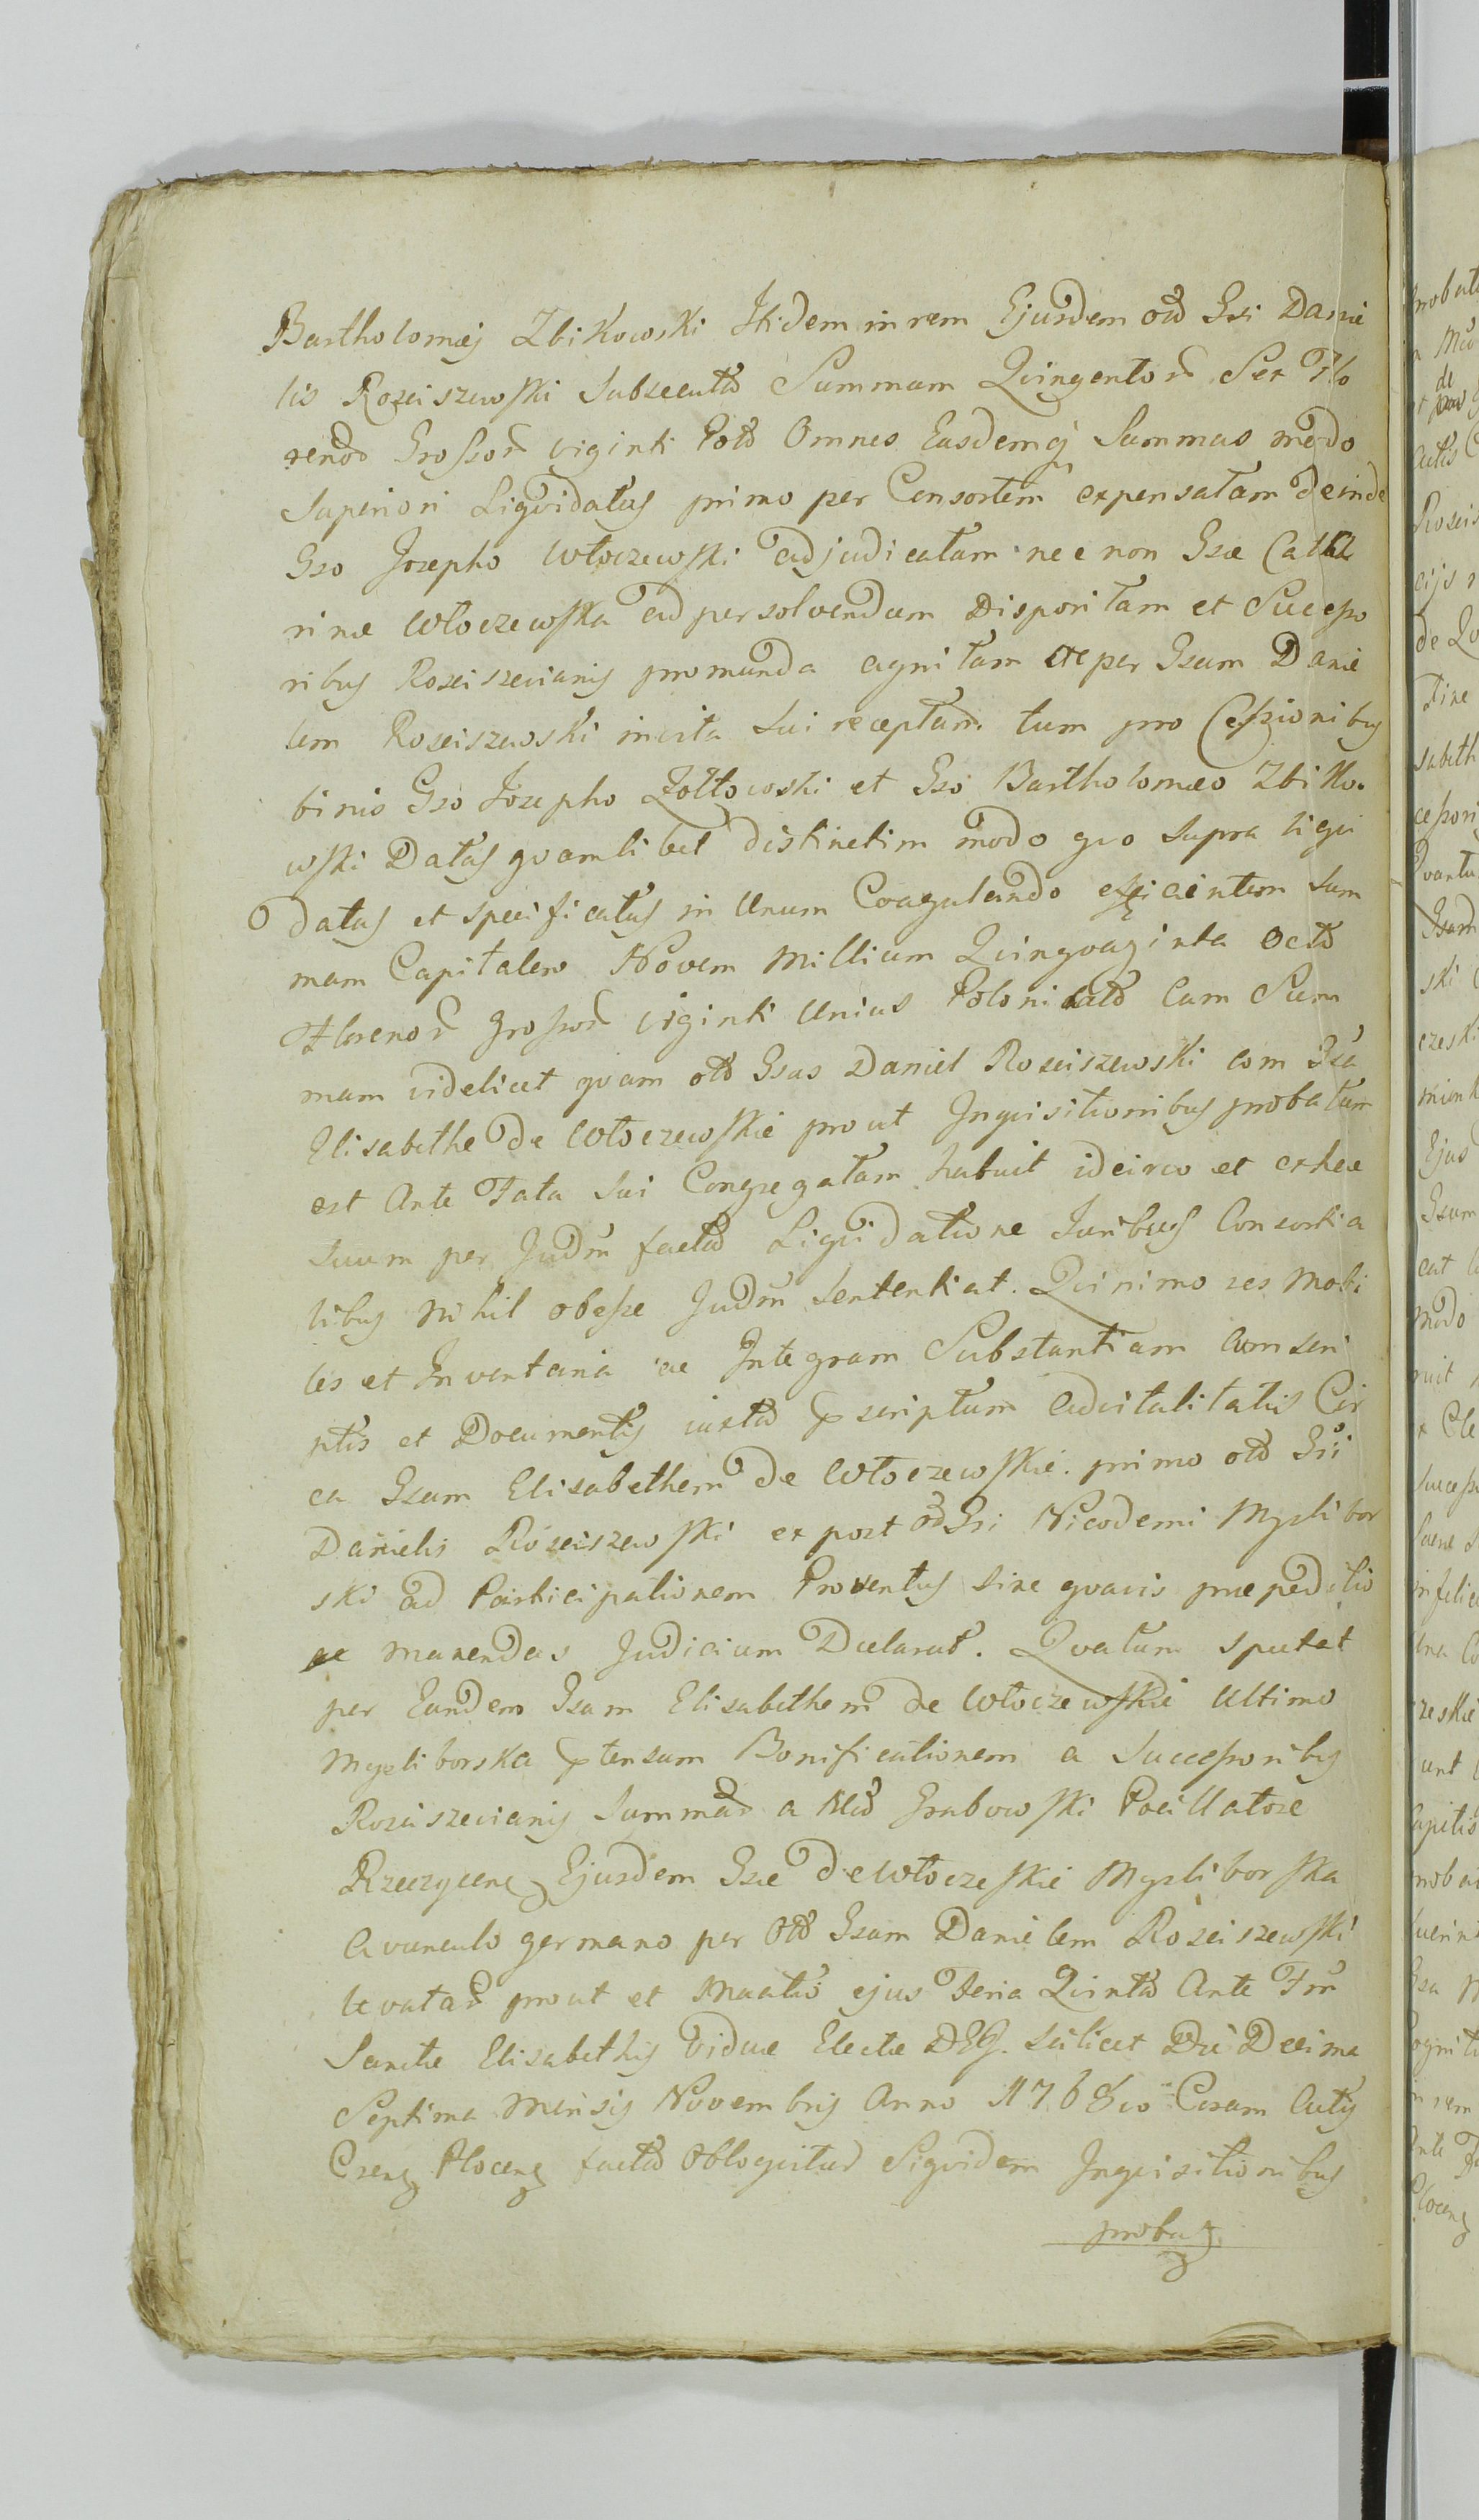 Bartholomæj Zbikowski Itidem in rem Ejusdem old Gsi Danie
lis Rosciszewski subsecuta Summam Qvingentor Sex Flo
renor Grossor viginti Potd Omnes Easdemq Summas modo
superiori Liqvidatas primo per Consortem expensatam deinde
Gso Josepho Włoczewski adjudicatam nec non Gsæ Catha
rinæ Włoczewska ad persolvendum Disporitam et Successo
ribus Rosciszevianis promunda agnitam et per Gsum Danie
lem Rosciszewski in vita sui receptam tum pro Cessionibus
binis Gso Josepho Zołtowski et Gso Bartholomæo Zbiko.
wski Datas qvamlibet distinctim modo qvo supra liqvi
datas et specificatas in Unum Coagulando efficientem Sum
mam Capitalem Novem Millium Qvinqvaginta Octo
Florenor grossor viginti Unius Polonicald Cum Sum
mam videlicet qvam old Gsus Daniel Rosciszewski com Gsa
Elisabethe de Włoczewskie prout Inqvisitionibus probatum
est Ante Fata sui Congregatam habuit idcirco et ex hac
suum per Judm facta Liqvidatione Juribus Consortia
libus nihil obesse Judm sententiat. Qvinimo res Mobi
les et Inventaria ac Integram Substantiam cum scri
ptis et Documentis iuxta pscriptum advitalitatis Cir
ca Gsam Elisabetham de Włoczewskie primo old Gsi
Danielis Rosciszewski ex post old Gsi Nicodemi Myslibor
ski ad Participationem Proventus sine qvavis præpeditio
ne manendas Judicium Declarat. Qvatum spectat
per Eandem Gsam Elisabetham de Włoczewskie Ultimo
Mysliborska ptensam Bonificationem a Successoribus
Rosciszevianis Summar a Mld Grabowski Pocillatore
Rzeczycen Ejusdem Gsæ de Włoczeskie Mysliborska
Avunculo germano per Old Gsum Danielem Rosciszewski
levatar prout et Maatio ejus Feria Qvinta Ante Fm
Sanctæ Elisabethis Viduæ Electæ DEG. scilicet Die Decima
Septima Mensis Novembris Anno 1768vo Coram Actis
Csens Plocens facta Obloqvitur Siqvidem Inqvisitionibus
probaz